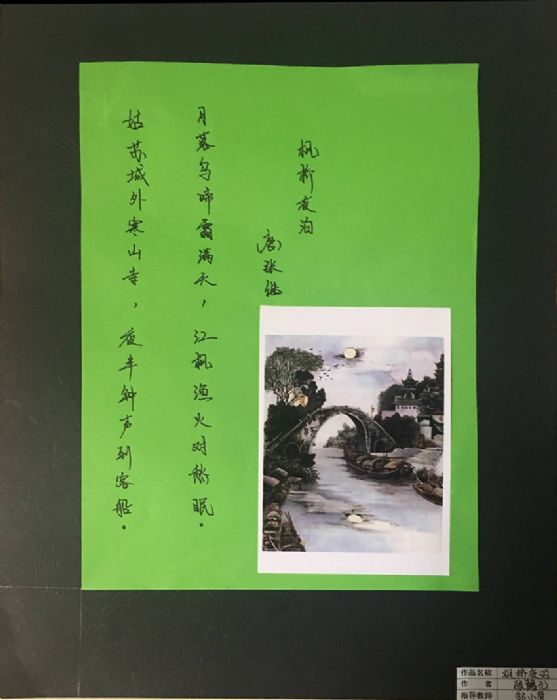 枫桥夜泊
(唐)张继
月落乌啼霜满天，江枫渔火对愁眠。
姑苏城外寒山寺，夜半钟声到客船。
作品名称 枫桥夜泊
作者
指导教师